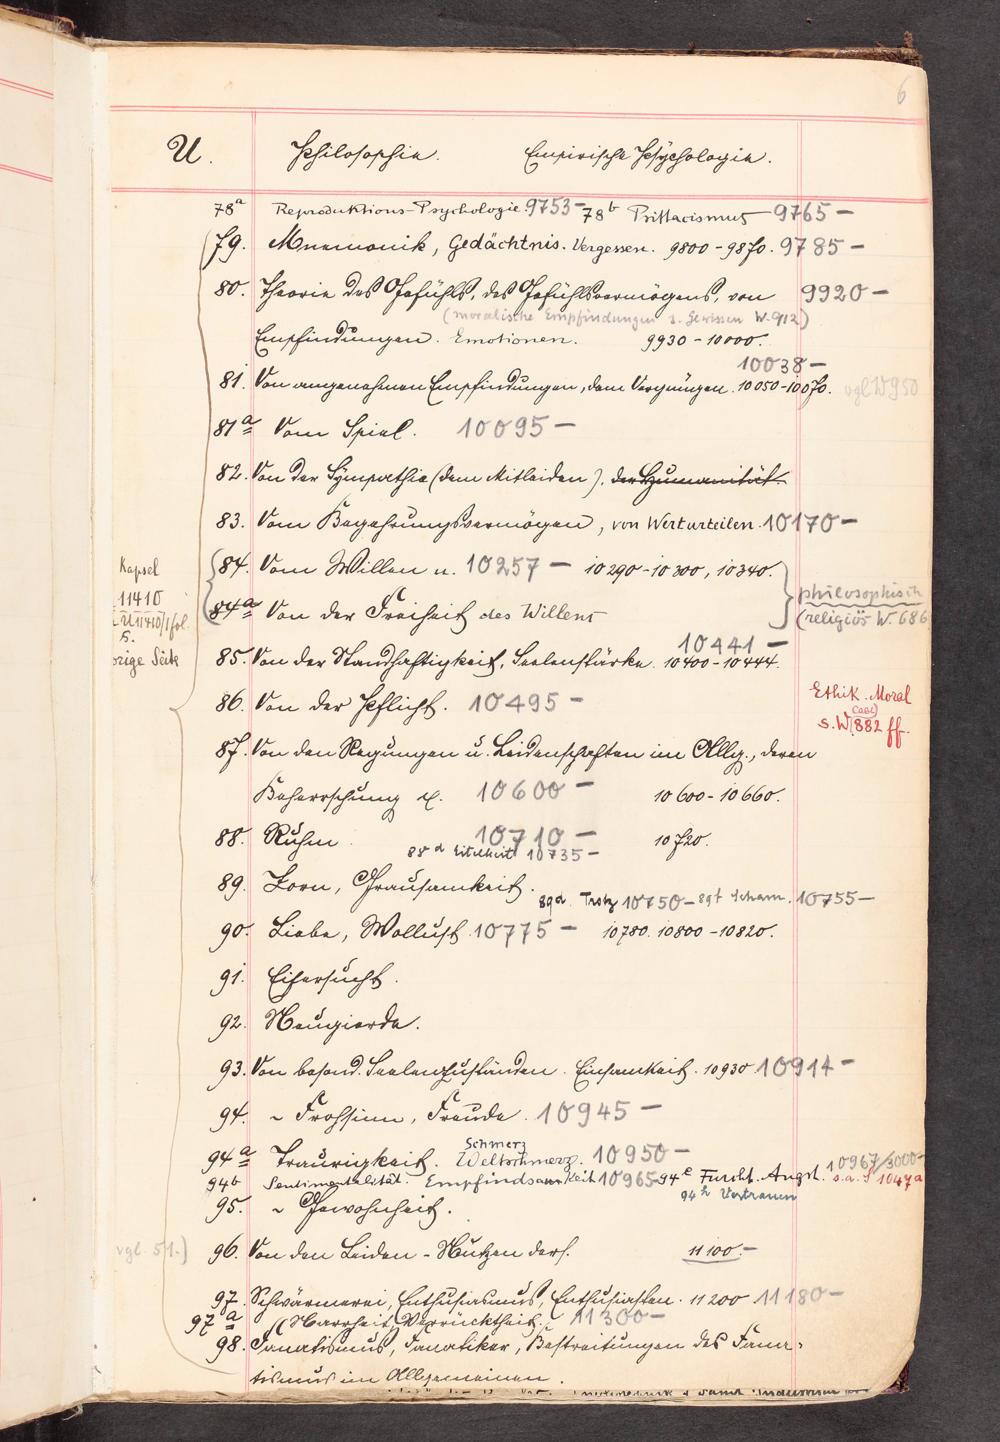 6
U. Philosophie. Empirische Psychologie.
78a Reproduktions-Psychologie. 9753- 78b Psittacismus 9765 -
79. Mnemonik, Gedächtnis. Vergessen. 9800 - 9870. 9785 -
80. Theorie des Gefühls, des Gefühlsvermögens, von 9920 -
(moralische Empfindungen s. Gewissen W. 912)
Empfindungen. Emotionen. 9930 - 10000.
10038 -
81. Von angenehmen Empfindungen, dem Vergnügen. 10050-10070. vgl W 950
81a Vom Spiel. 10095 -
82. Von der Sympathie (dem Mitleiden), der Humanität.
83. Vom Begehrungsvermögen, von Werturteilen. 10170 -
84. Vom Willen u. 10257 - 10290-10300, 10340.
Kapsel
11410
84a Von der Freiheit des Willens
philosophisch
(religiös W. 686
U 11410/1 fol.
s.
vorige Seite
10441 -
85. Von der Standhaftigkeit, Seelenstärke. 10400-10444.
86. Von der Pflicht. 10495 -
Ethik. Moral
s. W. 882 ff.
87. Von den Regungen u. Leidenschaften im Allg., deren
Beherrschung 10600 - 10600 - 10660.
88. Ruhm 10710 - 10720.
88d Eitelkeit 10735 -
89. Zorn, Grausamkeit.
89d Trotz 10750 - 89f Scham. 10755 -
90. Liebe, Wollust. 10775 - 10780. 10800 - 10820.
91. Eifersucht.
92. Neugierde.
93. Von besond. Seelenzuständen. Einsamkeit. 10930 10914 -
94. ~ Frohsinn, Freude. 10945 -
Schmerz
94a Traurigkeit. Weltschmerz. 10950 -
94b Sentimentalität. Empfindsamkeit 10965 - 94e Furcht. Angst. 10967/3000-
94h Vertrauen s. a. S 1047a
95. ~ Gewohnheit.
vgl. 51.) 96. Von den Leiden - Nutzen ders. 11100. -
97. Schwärmerei, Enthusiasmus, Enthusiasten. 11200 11180 -
97a (Narrheit, Verrücktheit. 11300 -
98. Fanatismus, Fanatiker, Bestreitungen des Fana-
tismus im Allgemeinen.